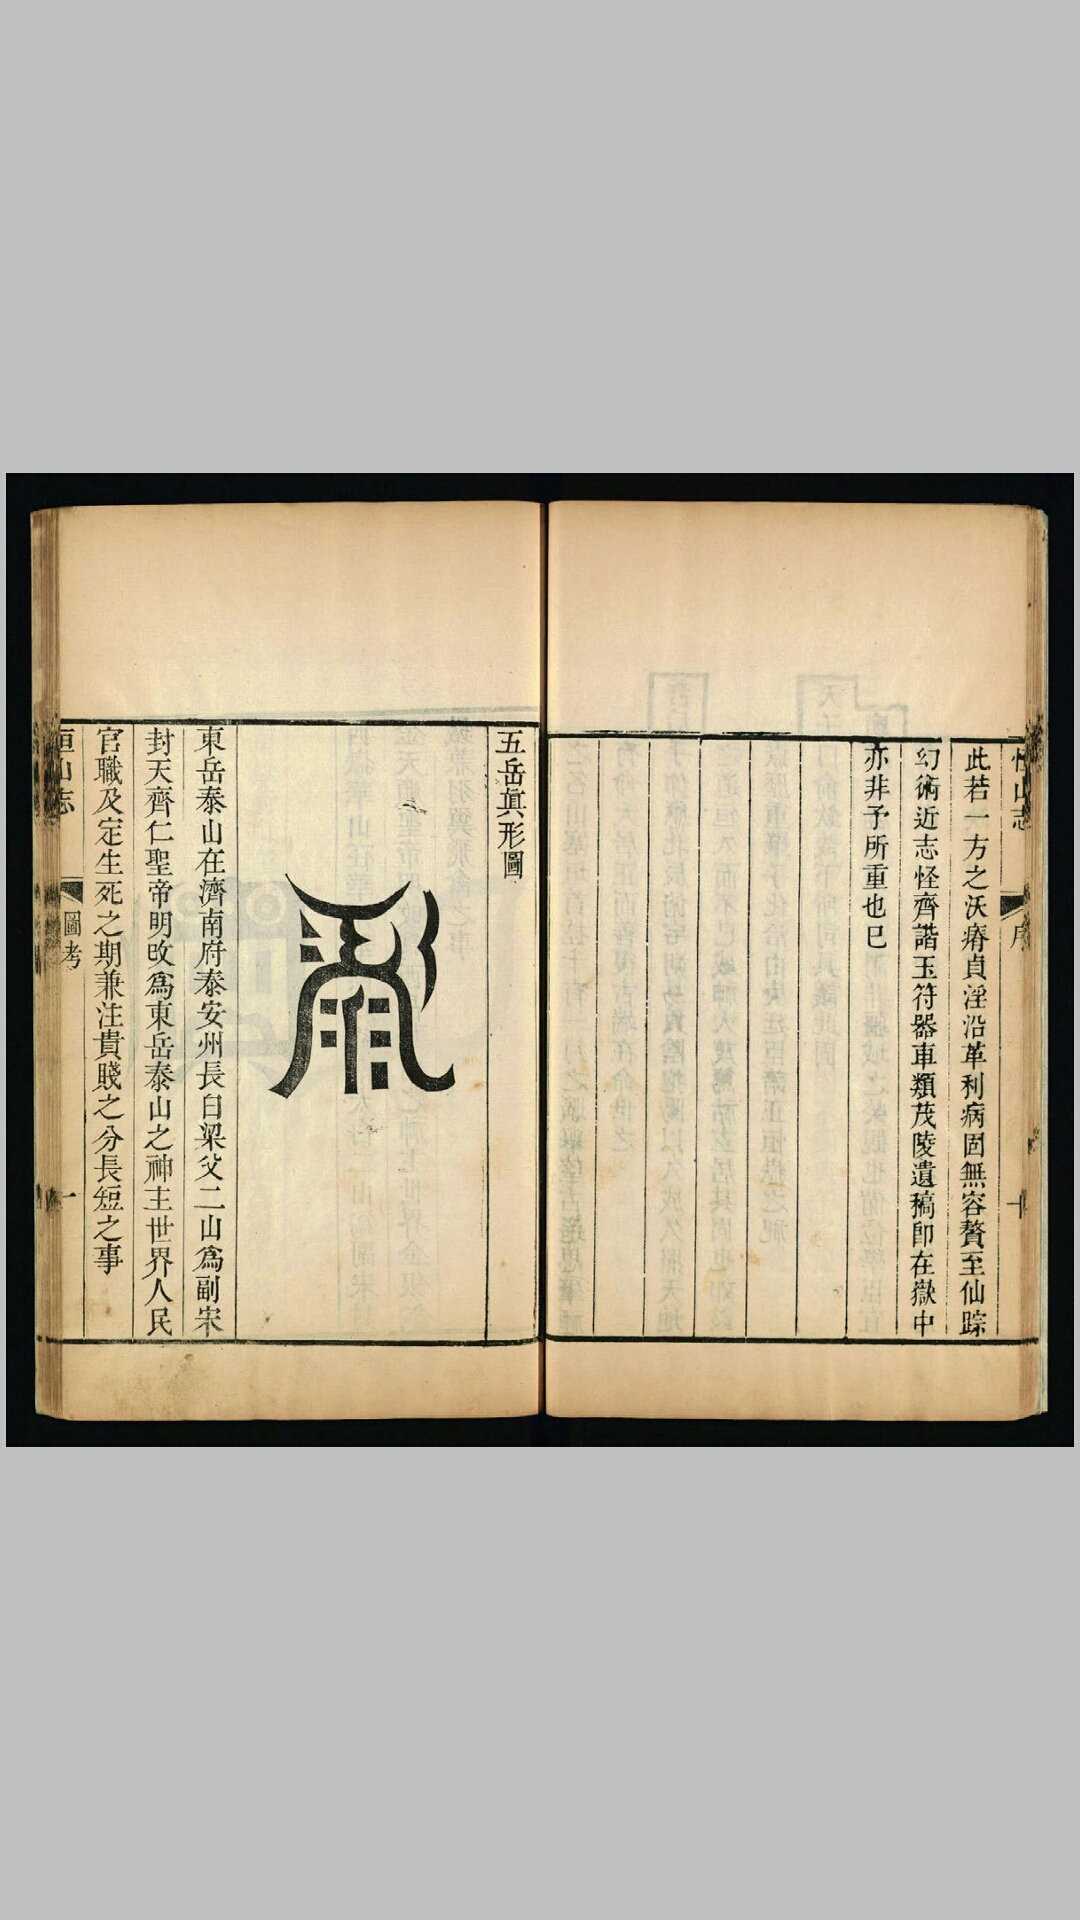 恒山志 序 十
此若一方之沃瘠貞淫沿革利病固無容贅至仙踪
幻術近志怪齊諧玉符器車類茂陵遺稿即在嶽中
亦非予所重也已
五岳眞形圖
東岳泰山在濟南府泰安州長白梁父二山爲副宋
封天齊仁聖帝明改爲東岳泰山之神主世界人民
官職及定生死之期兼注貴賤之分長短之事
恒山志 圖考 一